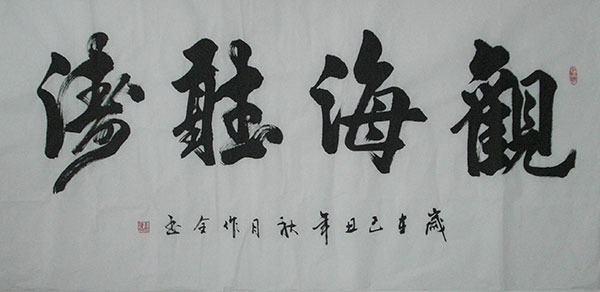 觀海聽濤
歲在己丑年秋月作全